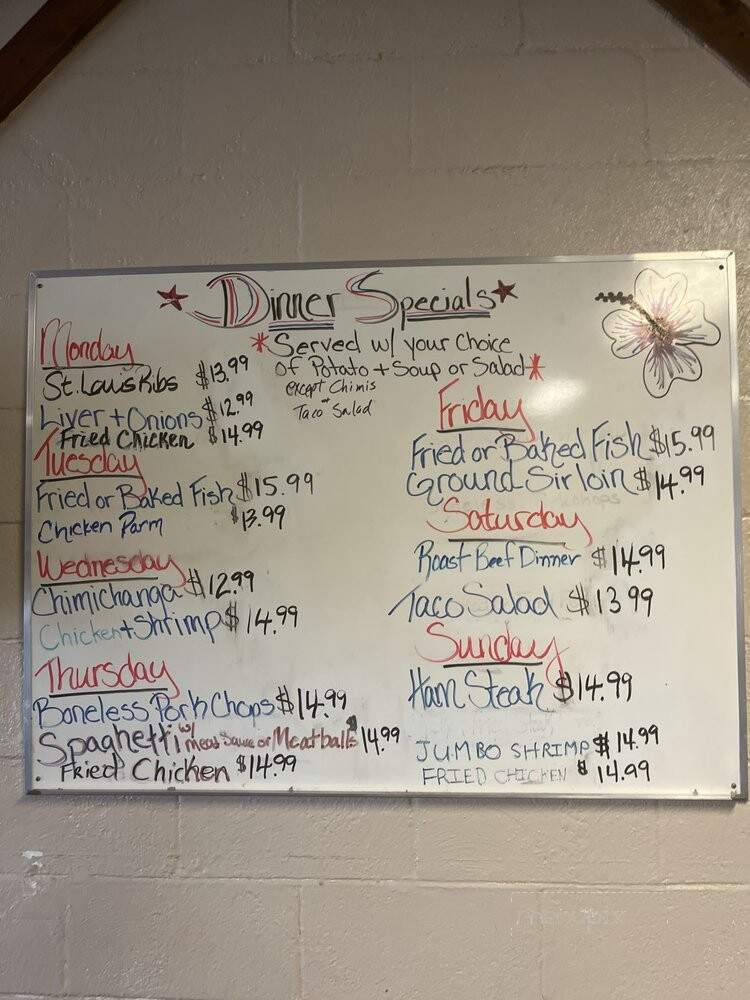 ★ Dinner Specials ★
*Served w/ your Choice
of Potato + Soup or Salad*
except Chimis
Taco Salad
Monday
St. Louis Ribs $13.99
Liver + Onions $12.99
Fried Chicken $14.99
Tuesday
Fried or Baked Fish $15.99
Chicken Parm $13.99
Wednesday
Chimichanga $12.99
Chicken + Shrimp $14.99
Thursday
Boneless Pork Chops $14.99
Spaghetti w/ meat Sauce or Meatballs $14.99
Fried Chicken $14.99
Friday
Fried or Baked Fish $15.99
Ground Sirloin $14.99
Saturday
Roast Beef Dinner $14.99
Taco Salad $13.99
Sunday
Ham Steak $14.99
JUMBO SHRIMP $14.99
FRIED CHICKEN $14.99